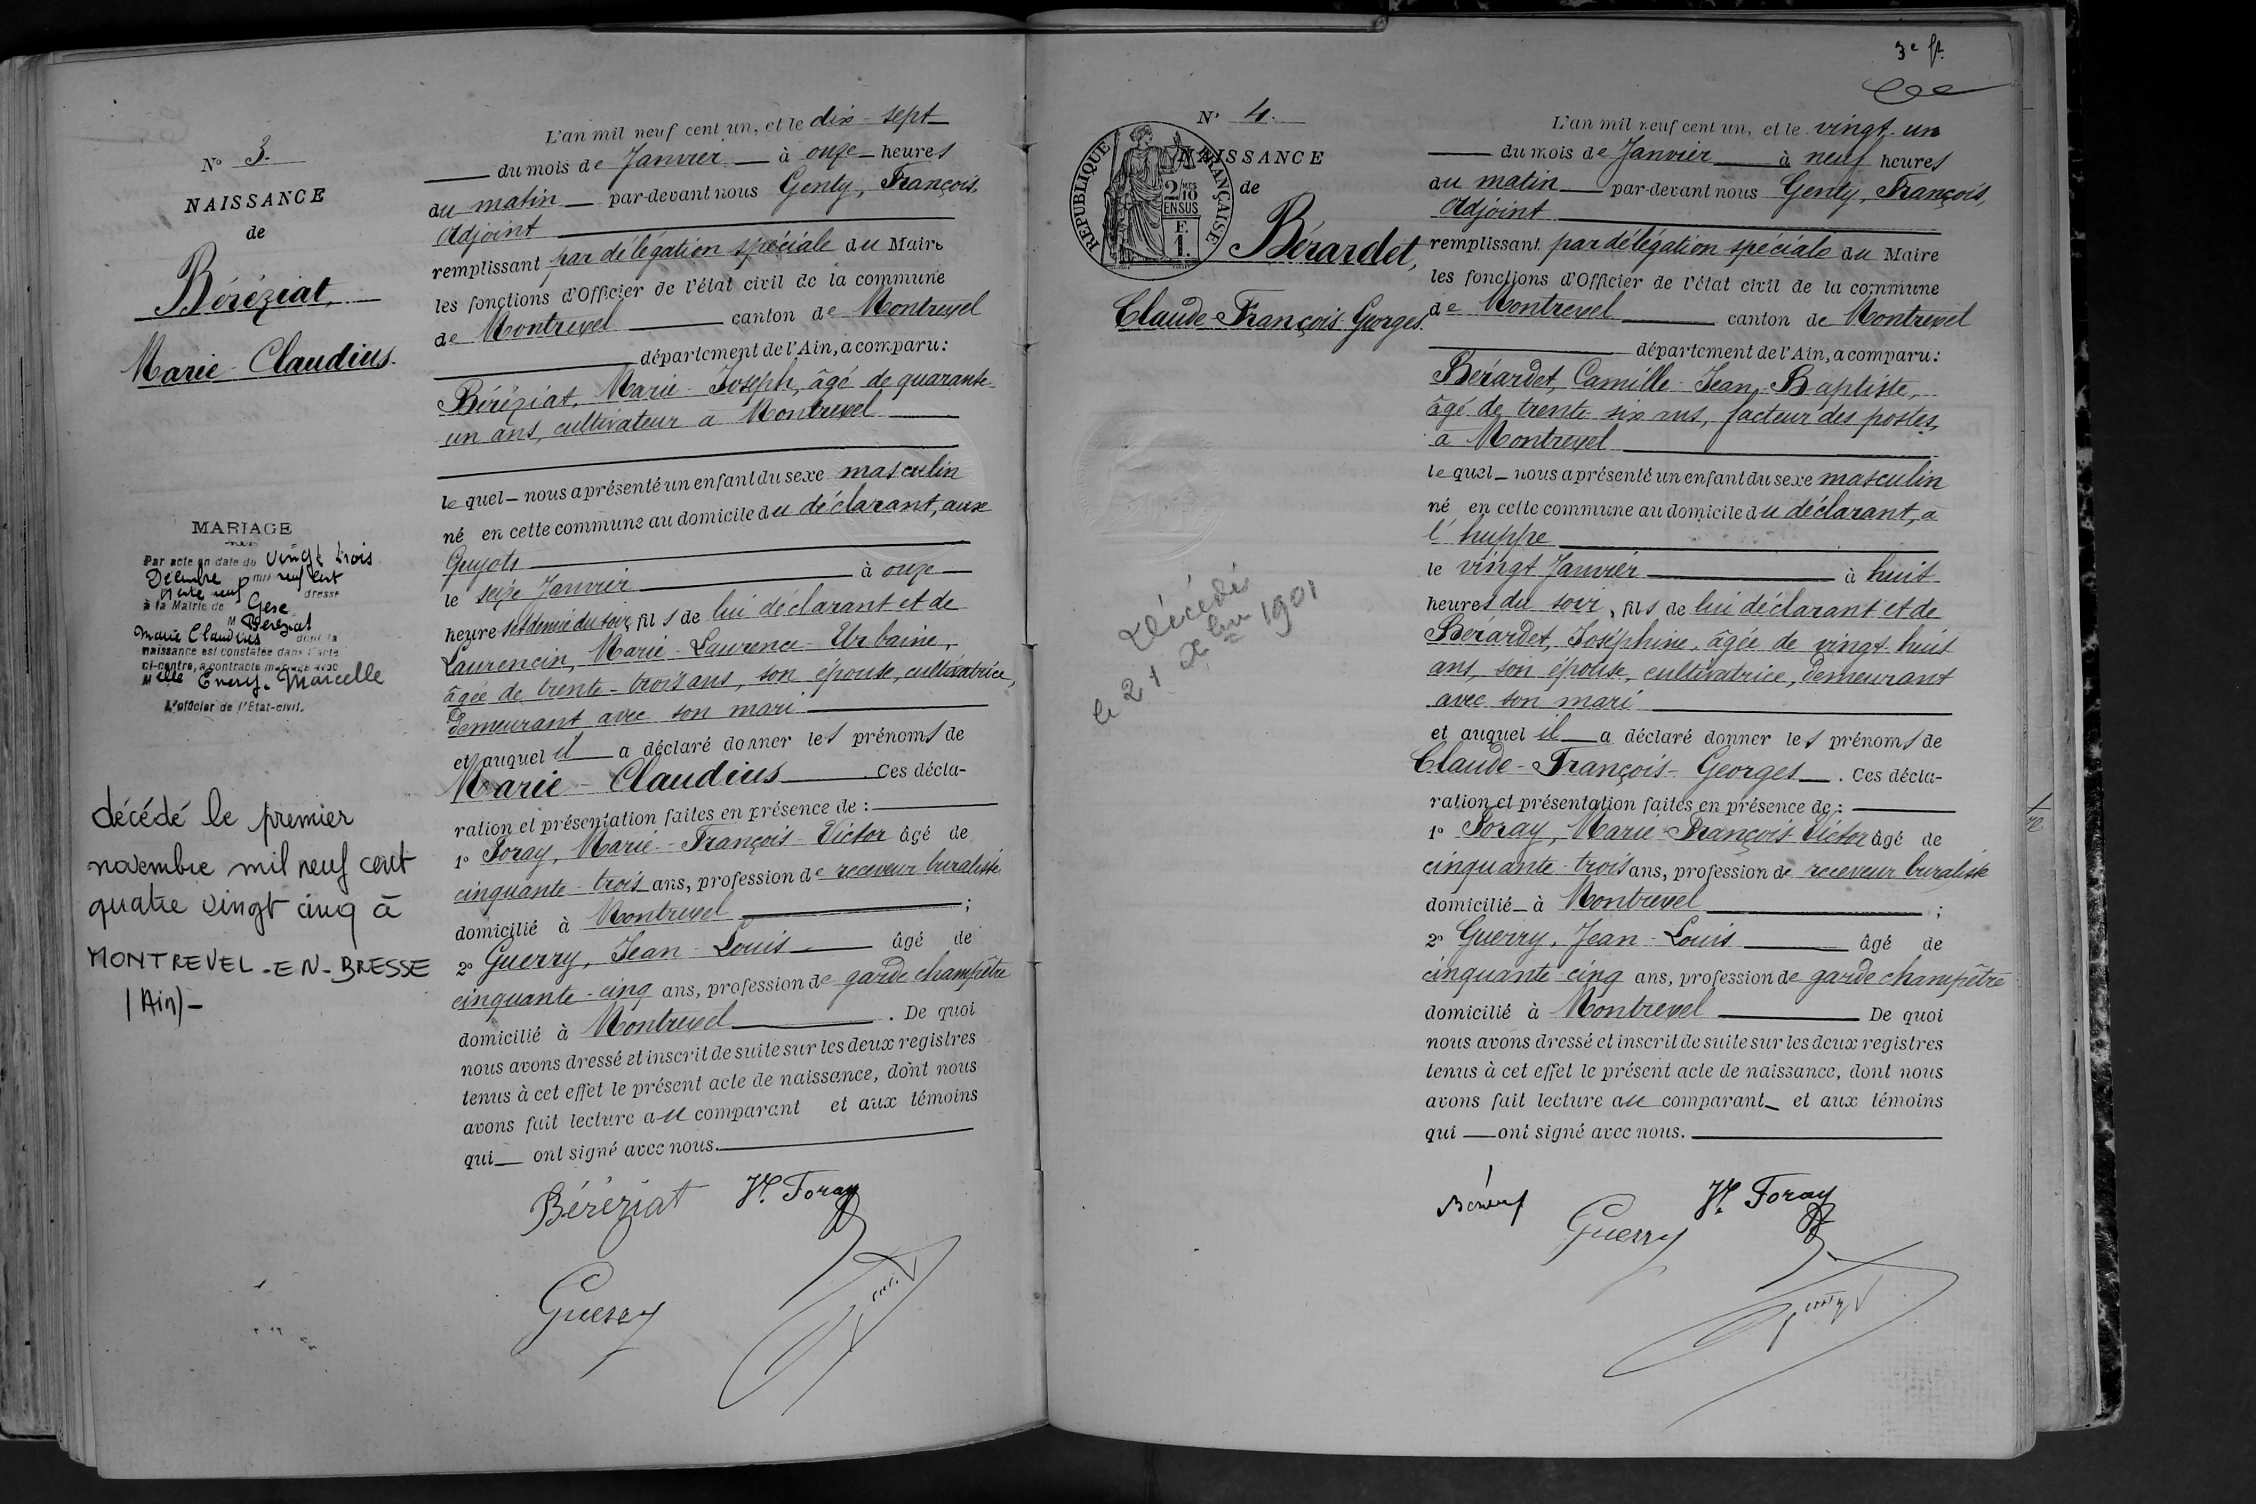 N° 3.
NAISSANCE
de
Béréziat,
Marie-Claudius.
MARIAGE
Par acte en date du vingt trois
Décembre mil neuf cent
trente neuf dressé
à la Mairie de Gex
M Béréziat
Marie Claudius dont la
naissance est constatée dans l'acte
ci-contre, a contracté mariage avec
Melle Marcelle
L'officier de l'Etat-civil.
décédé le premier
novembre mil neuf cent
quatre vingt cinq à
MONTREVEL-EN-BRESSE
(Ain)-
L'an mil neuf cent un, et le dix-sept
du mois de Janvier à onze heures
du matin par-devant nous Genty, François,
Adjoint
remplissant par délégation spéciale du Maire
les fonctions d'Officier de l'état civil de la commune
de Montrevel canton de Montrevel
département de l'Ain, a comparu:
Béréziat, Marie-Joseph, âgé de quarante-
un ans, cultivateur a Montrevel
lequel nous a présenté un enfant du sexe masculin
né en cette commune au domicile du déclarant, aux
Guyots
le seize Janvier à onze
heures et demie du soir, fils de lui déclarant et de
Laurencin, Marie-Laurence-Urbaine,
âgée de trente-trois ans, son épouse, cultivatrice,
demeurant avec son mari
et auquel il a déclaré donner les prénoms de
Marie-Claudius Ces décla-
ration et présentation faites en présence de:
1° Foray, Marie-François-Victor âgé de
cinquante-trois ans, profession de receveur buraliste
domicilié à Montrevel ;
2° Guerry, Jean-Louis âgé de
cinquante-cinq ans, profession de garde champêtre
domicilié à Montrevel . De quoi
nous avons dressé et inscrit de suite sur les deux registres
tenus à cet effet le présent acte de naissance, dont nous
avons fait lecture au comparant et aux témoins
qui ont signé avec nous.
Béréziat Vr. Foray
Guerry
3e ft.
N° 4.
NAISSANCE
de
RÉPUBLIQUE FRANÇAISE
2/10 EN SUS
F.
1.
Bérardet,
Claude-François-Georges.
Décédé
le 21 Xbre 1901
L'an mil neuf cent un, et le vingt-un
du mois de Janvier à neuf heures
du matin par-devant nous Genty, François,
Adjoint
remplissant par délégation spéciale du Maire
les fonctions d'Officier de l'état civil de la commune
de Montrevel canton de Montrevel
département de l'Ain, a comparu:
Bérardet, Camille-Jean-Baptiste,
âgé de trente-six ans, facteur des postes,
a Montrevel
lequel nous a présenté un enfant du sexe masculin
né en cette commune au domicile du déclarant, a
l'huppe
le vingt Janvier à huit
heures du soir, fils de lui déclarant et de
Bérardet, Joséphine, âgée de vingt-huit
ans, son épouse, cultivatrice, demeurant
avec son mari
et auquel il a déclaré donner les prénoms de
Claude-François-Georges . Ces décla-
ration et présentation faites en présence de:
1° Foray, Marie-François-Victor âgé de
cinquante-trois ans, profession de receveur buraliste
domicilié à Montrevel ;
2° Guerry, Jean-Louis âgé de
cinquante-cinq ans, profession de garde champêtre
domicilié à Montrevel De quoi
nous avons dressé et inscrit de suite sur les deux registres
tenus à cet effet le présent acte de naissance, dont nous
avons fait lecture au comparant et aux témoins
qui ont signé avec nous.
Guerry Vr. Foray